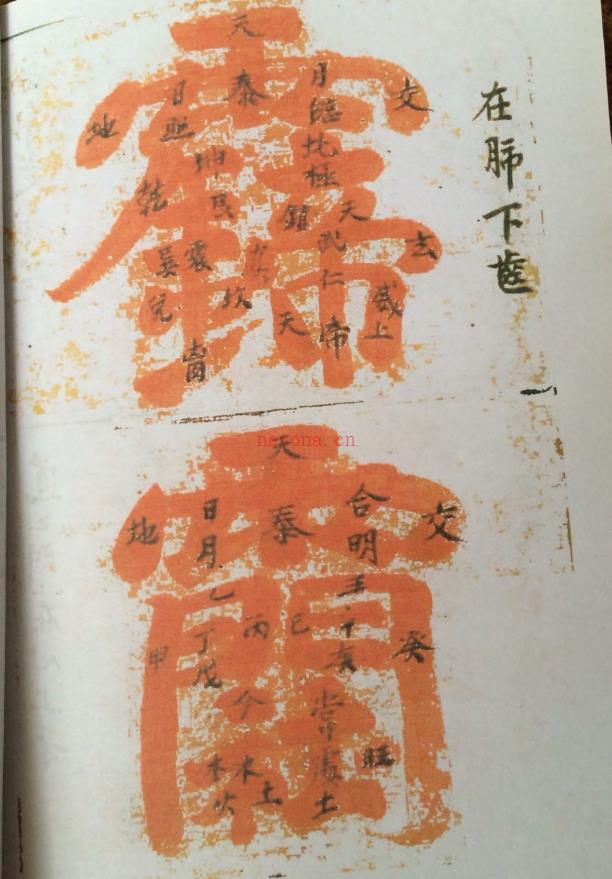 在肺下齒
天
地 泰 交
日照 月臨北極
乾 坤艮 鎮 天武仁 玄
巽兌 震 坎 天 帝 上
天
地 泰 交
日月 合明
甲 乙 丙 己 壬 癸
丁戊
木火 水土 土 旺
narona.cn